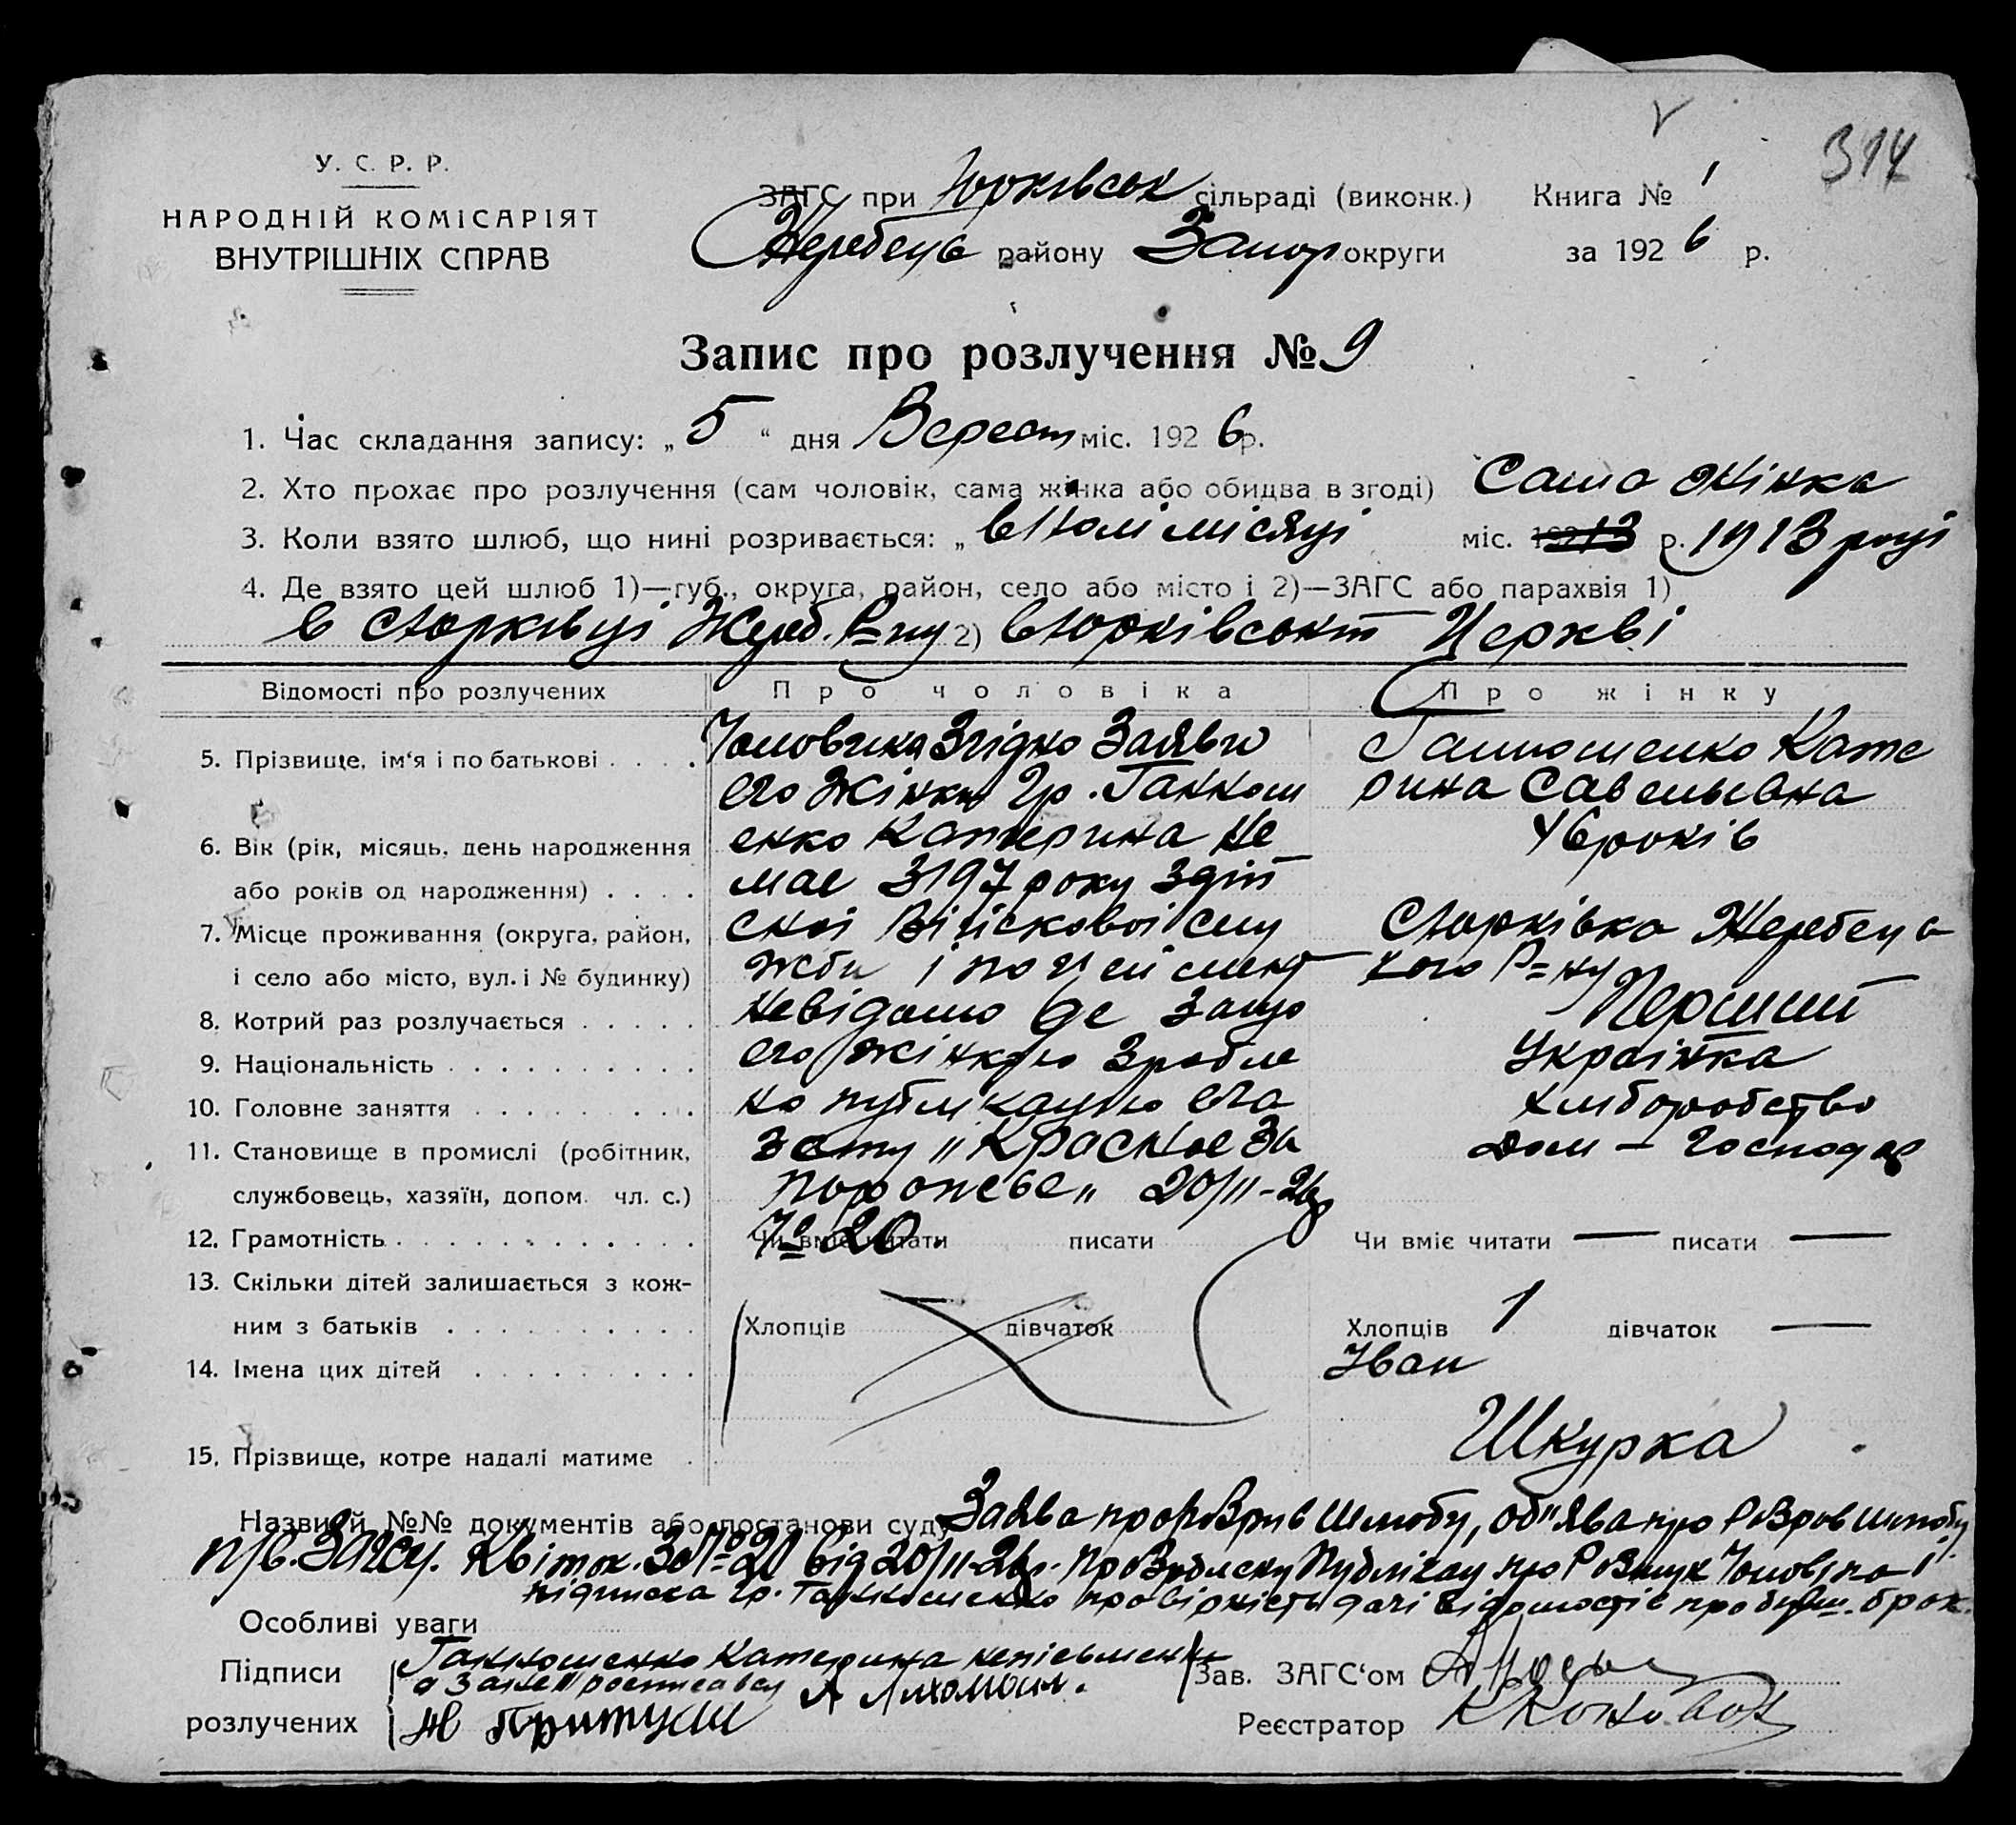 314
У. С. Р. Р.
НАРОДНІЙ КОМІСАРІЯТ
ВНУТРІШНІХ СПРАВ
ЗАГС при Юрківськ сільраді (виконк.) Книга № 1
Жеребець району Запор округи за 1926 р.
Запис про розлучення № 9
1. Час складання запису: „ 5 “ дня Вересн міс. 1926 р.
2. Хто прохає про розлучення (сам чоловік, сама жінка або обидва в згоді) Сама жінка
3. Коли взято шлюб, що нині розривається: „ місяці міс. р. 1913 році
4. Де взято цей шлюб 1)—губ., округа, район, село або місто і 2)—ЗАГС або парахвія 1)
в Юрківці Жереб. Р=ну 2) в Юрківській Церкві
Відомості про розлучених Про чоловіка Про жінку
5. Прізвище, ім'я і по батькові
Чоловіка Згідно Заяви
его Жінки гр. Ганнош
енко Катерина Не
має З 197 року З дій
сної Війіскової слу
жби і по цей
Невідомо де За що
его жінкою Зробле
но публікацию его
зету „Красное За
порожье„ 20/II-26р
№ 20.
Ганношенко Кате
рина Савельевна
6. Вік (рік, місяць, день народження
або років од народження)
років
7. Місце проживання (округа, район,
і село або місто, вул. і № будинку)
с Юрківка Жеребец
кого Р=ну
8. Котрий раз розлучається Перший
9. Національність Українка
10. Головне заняття хлиборобство
11. Становище в промислі (робітник,
службовець, хазяїн, допом. чл. с.)
Дом — Господар
12. Грамотність Чи вміє читати писати Чи вміє читати — писати —
13. Скільки дітей залишається з кож-
ним з батьків Хлопців дівчаток Хлопців 1 дівчаток —
14. Імена цих дітей Иван
15. Прізвище, котре надалі матиме Шкурка
Назви й №№ документів або постанови суду Заява про Розрив Шлюбу, об"ява про Розров шлюбу
Загсу. Квіток. За № 20 від 20/II-26р. про Публікац про Розшук і
підписка гр. Ганношенко про вірність дачі відомостів про
Особливі уваги
Підписи
розлучених
Ганношенко Катерина непісьменн
а За нее росписався А
Зав. ЗАГС'ом
Реєстратор